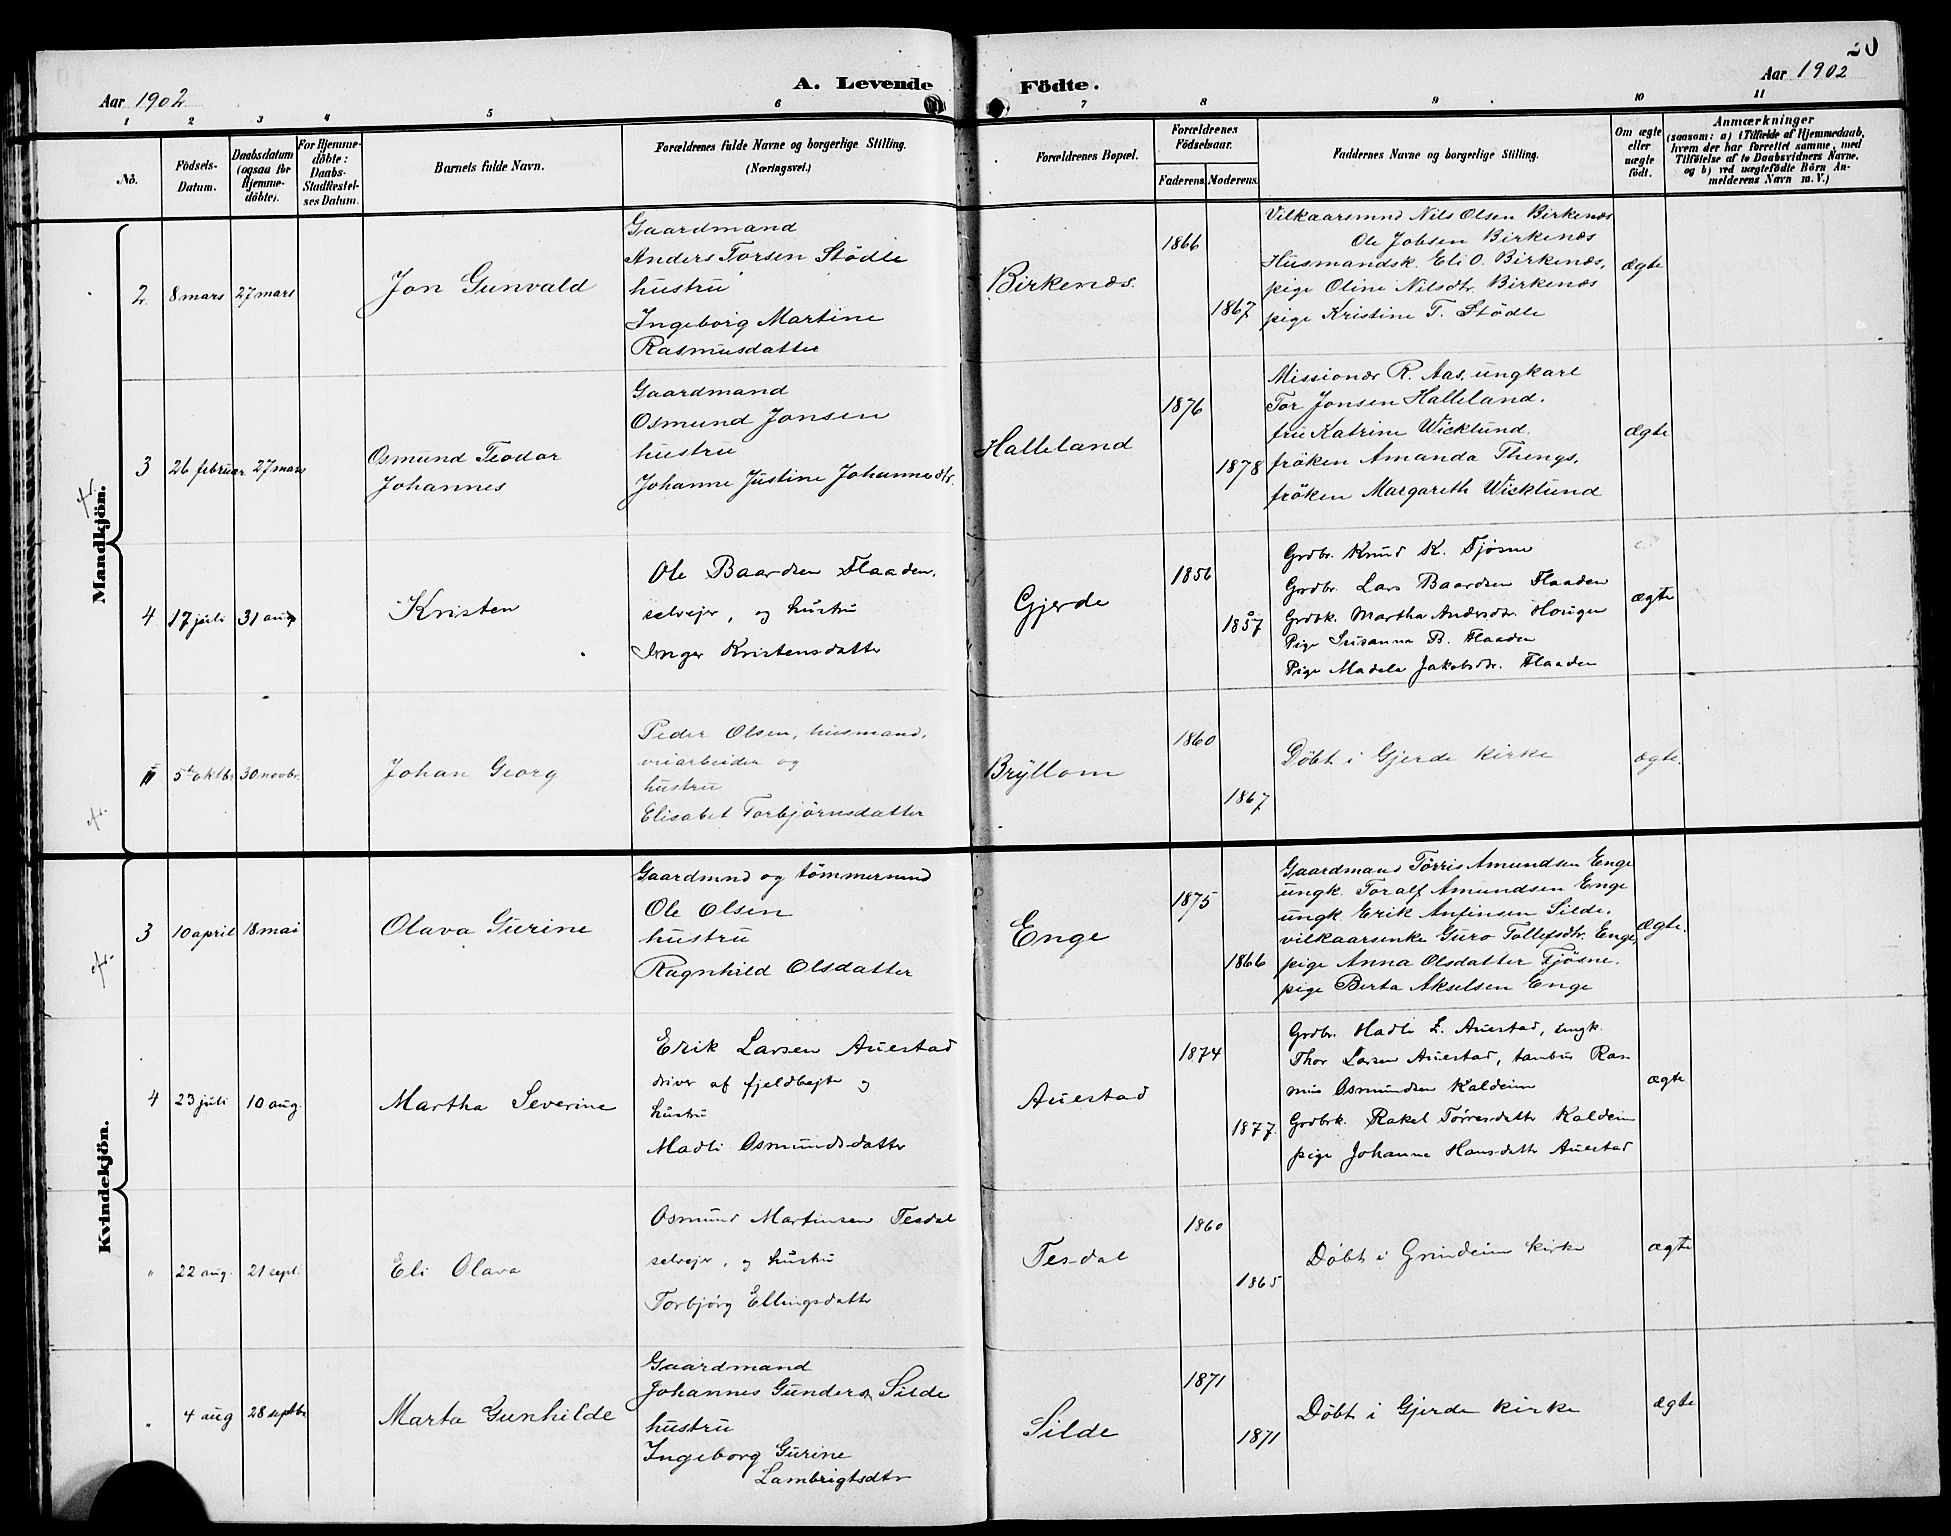 20
Aar 1902
A. Levende Födte.
Aar 1902
1 2 3 4 5 6 7 8 9 10 11
No.
Födsels-Datum.
Daabsdatum (ogsaa for Hjemme-döbte).
For Hjemme-döbte: Daabs-Stadfæstel-ses Datum.
Barnets fulde Navn.
Forældrenes fulde Navne og borgerlige Stilling.
(Næringsvei.)
Forældrenes Bopæl.
Forældrenes Födselsaar.
Faderens. Moderens.
Faddernes Navne og borgerlige Stilling.
Om ægte eller uægte födt.
Anmærkninger
(saasom: a) i Tilfælde af Hjemmedaab,
hvem der har forrettet samme, med
Tilföielse af to Daabsvidners Navne.
og b) ved uægtefödte Börn An-
melderens Navn m. V.)
Mandkjön.
2 8 mars 27 mars
Jon Gunvald
Gaardmand
Anders Torsen Stödle
hustru
Ingeborg Martine
Rasmusdatter
Birkenæs.
1866
1867
Vilkaarsmnd Nils Olsen Birkenæs
Ole Jobsen Birkenæs
Husmandsk. Eli O. Birkenæs,
pige Oline Nilsdtr. Birkenæs
pige Kristine T. Stödle
Ægte
3 26 februar 27 mars
Osmund Teodor
Johannes
Gaardmand
Osmund Jonsen
hustru
Johanne Justine Johannesdtr.
Halleland
1876
1878
Missionær R. Aas, ungkarl
Tor Jonsen Halleland.
fru Katrine Wicklund.
fröken Amanda Thengs,
fröken Margareth Wicklund
Ægte
4 17 juli 31 aug
Kristen
Ole Baardsen Flaaden,
selvejer, og hustru
Inger Kristensdatter
Gjerde
1856
1857
Grdbr. Knud K. Tjøsne
Grdbr. Lars Baardsen Flaaden
Grdbk. Martha Andersdtr. Hougen
Pige Susanna B. Flaaden
Pige Madela Jakobsdtr. Flaaden
ægte
" 5te oktbr. 30 novbr.
Johan Georg
Peder Olsen, husmand,
veiarbeider og
hustru
Elisabet Torbjörnsdatter
Bryllom
1860
1867
Døbt i Gjerde kirke
ægte.
Kvindekjön.
3 10 april 18 mai
Olava Gurine
Gaardmnd og tömmermnd
Ole Olsen
hustru
Ragnhild Olsdatter
Enge
1875
1866
Gaardmand Tørris Amundsen Enge
ungk. Toralf Amundsen Enge
ungk. Erik Anfinsen Silde.
vilkaarsenke Guro Tollefsdtr. Enge,
pige Anna Olsdatter Tjösne.
pige Berta Akselsen Enge
Ægte.
4 23 juli 10 aug.
Martha Severine
Erik Larsen Auestad
driver af fjeldbejte og
hustru
Madli Osmundsdatter
Auestad
1874
1877.
Grdbr. Hadle L. Auestad, ungk.
Thor Larsen Auestad, tambur Ras-
mus Osmundsen Kaldeim
Grdbrk. Rakel Tørresdatter Kaldeim
pige Johanna Hansdatter Auestad
ægte
" 22 aug. 21 sept.
Eli Olava
Osmund Martinsen Tesdal
selvejer, og hustru
Torbjørg Ellingsdatter
Tesdal
1860
1865
Døbt i Grindeim kirke
ægte
" 4 aug 28 septbr
Marta Gunhilde
Gaardmand
Johannes Gunders. Silde
hustru
Ingeborg Gurine
Lambrigtsdtr
Silde
1871
1871
Døbt i Gjerde kirke
ægte